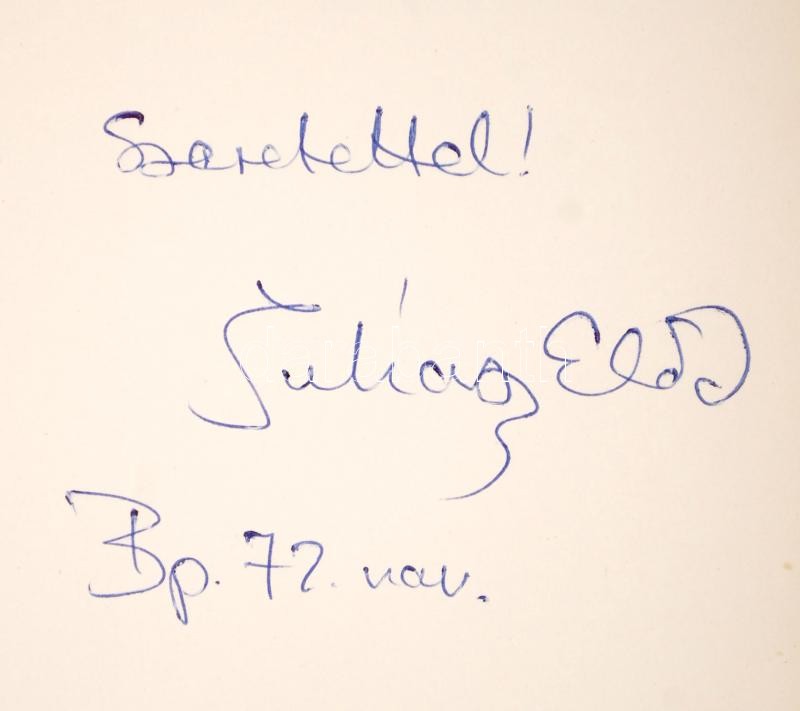 Szeretettel!
Juhász Előd
Bp. 72. nov.